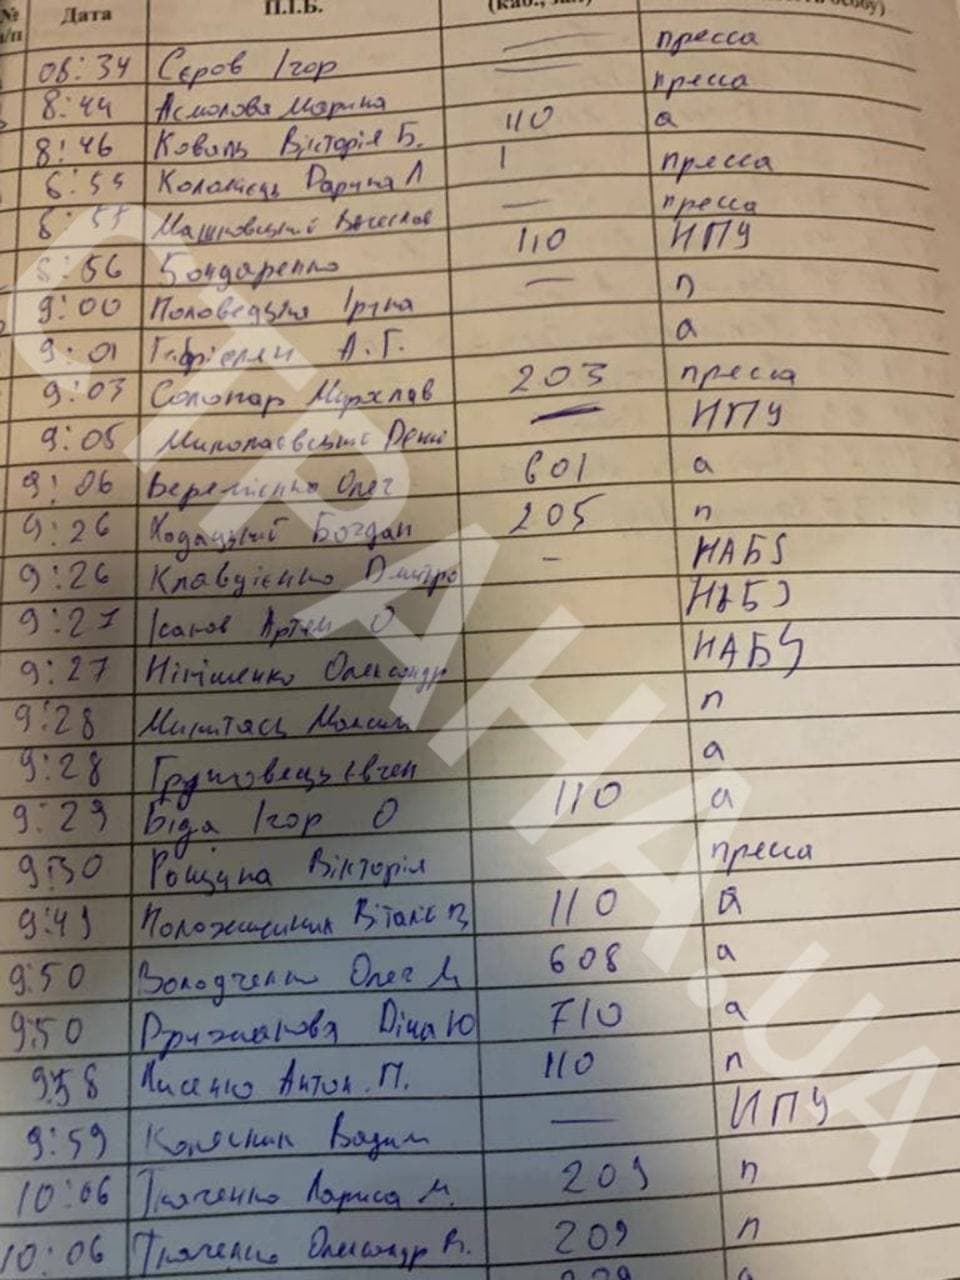 № Дата П.І.Б.
п/п
08:34 Сєров Ігор — пресса
8:44 Асмолова Марина — пресса
8:46 Коваль Вікторія Б. 110 а
Коломієць Дарина Л пресса
Машковський — пресса
8:56 Бондаренко 110 ИПУ
9:00 Половецька Ірина — п
9:01 А.Г. а
9:03 Солопар Мирослав 203 пресса
9:05 Миколаєвський Денис — ИПУ
9:06 Веремієнко Олег 601 а
9:26 Ходацький Богдан 205 п
9:26 Клавдієнко Дмитро - НАБУ
9:27 Ісаков Артем О НАБУ
9:27 Нікішенко Олександр НАБУ
9:28 Микитась Максим п
9:28 Грушовець Євген а
9:29 Біда Ігор О 110 а
9:30 Рощина Вікторія пресса
9:49 Віталіє В 110 а
9:50 Володченко Олег М 608 а
9:50 Діна Ю 710 а
9:58 Лисенко Антон.П. 110 п
9:59 Колесник Вадим — ИПУ
10:06 Ткаченко Лариса М. 209 п
10:06 Ткаченко Олександр В. 209 п
СТРАНА.UA